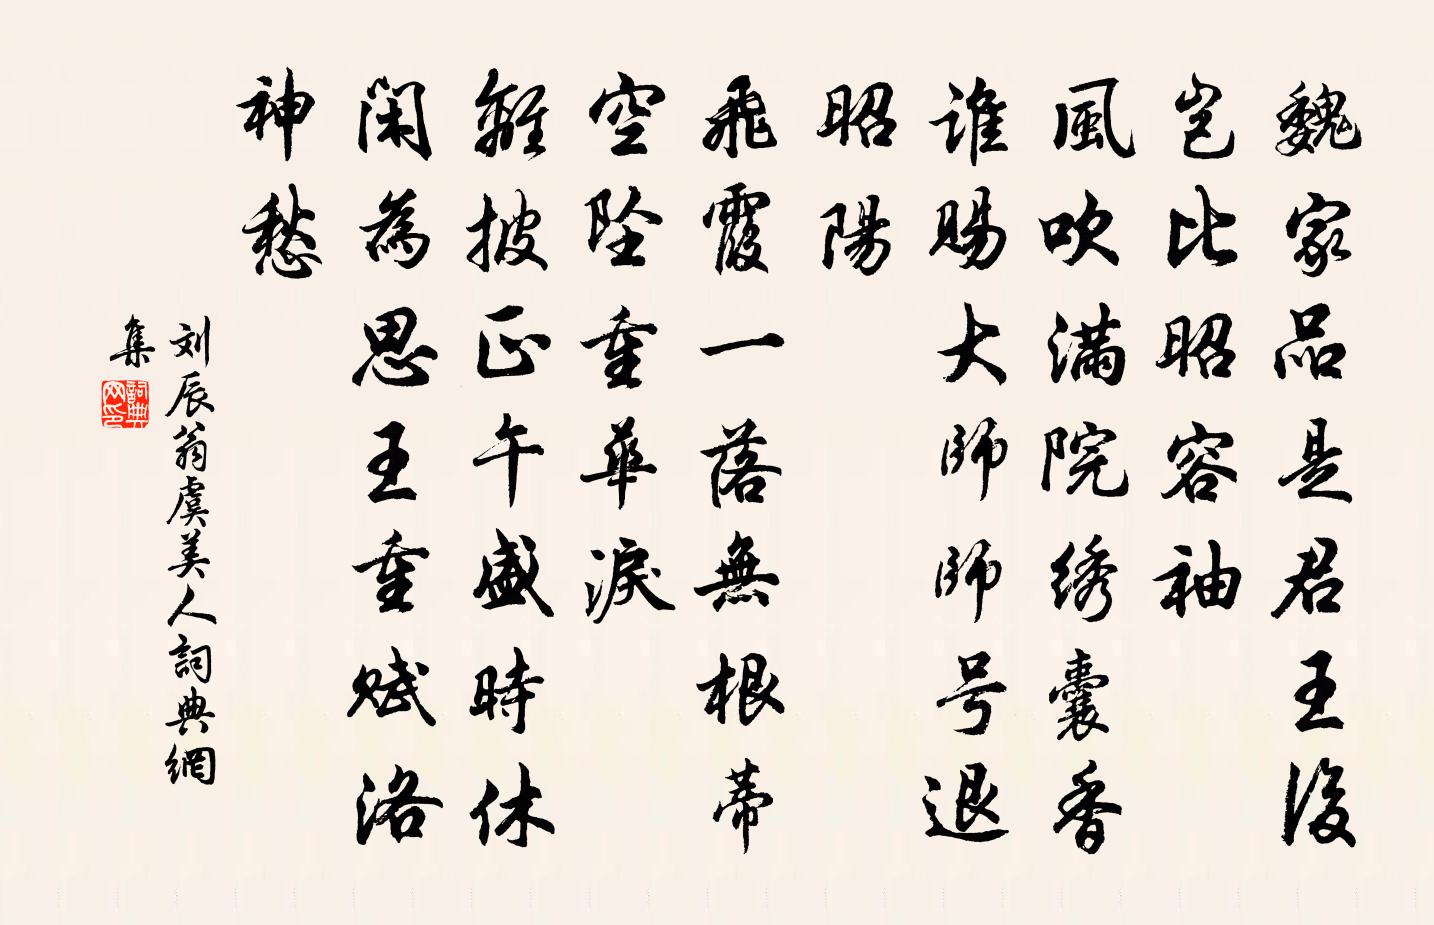 魏家品是君王後
岂比昭容袖
風吹滿院綉囊香
誰賜大师师号退
昭陽
飛霞一落無根蒂
空坠重華淚
離披正午盛時休
閑為思王重賦洛
神愁
刘辰翁虞美人詞典網
集
詞典网印